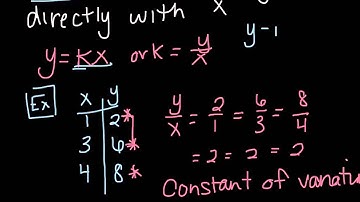 directly with x
y=kx or k = y/x
y-
Ex x y
1 2*
3 6*
4 8*
y/x = 2/1 = 6/3 = 8/4
= 2 = 2 = 2
Constant of variation